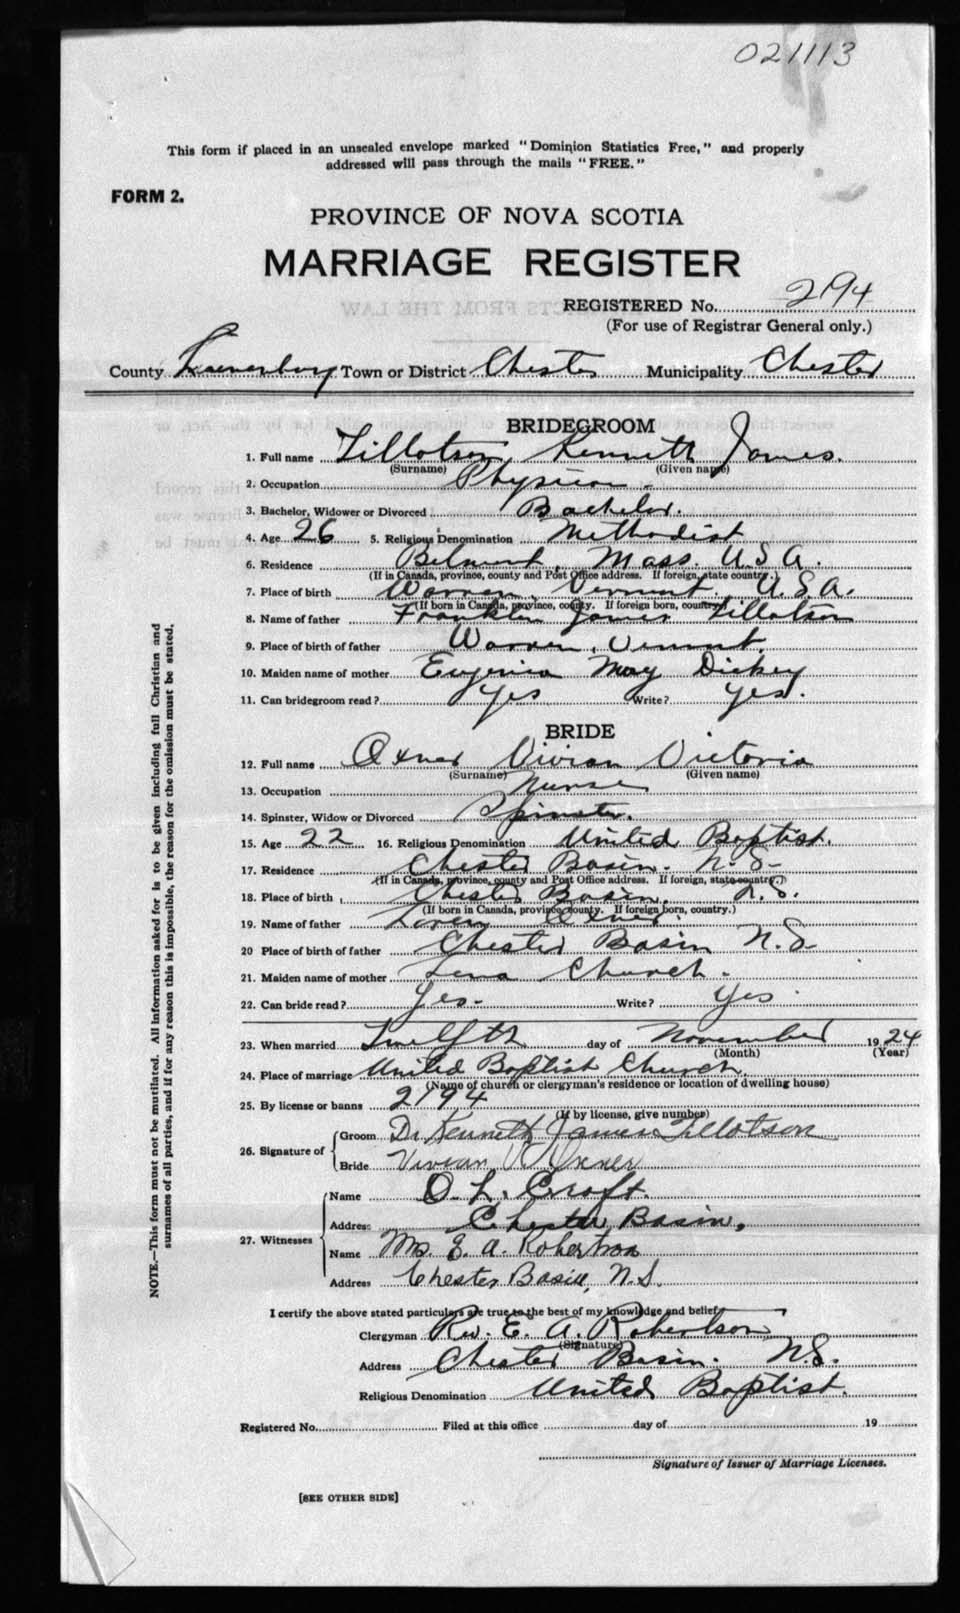 021113
This form if placed in an unsealed envelope marked "Dominion Statistics Free," and properly
addressed will pass through the mails "FREE."
FORM 2.
PROVINCE OF NOVA SCOTIA
MARRIAGE REGISTER
REGISTERED No. 2194
(For use of Registrar General only.)
County Lunenburg Town or District Chester Municipality Chester
BRIDEGROOM
1. Full name Tillotson, Kenneth James.
(Surname) (Given name)
2. Occupation Physician.
3. Bachelor, Widower or Divorced Bachelor.
4. Age 26 5. Religious Denomination Methodist
6. Residence Belmont, Mass. U.S.A.
(If in Canada, province, county and Post Office address. If foreign, state country.)
7. Place of birth Warren, Vermont, U.S.A.
(If born in Canada, province, county. If foreign born, country)
8. Name of father Franklin James Tillotson
9. Place of birth of father Warren, Vermont.
10. Maiden name of mother Eugenia May Dickey
11. Can bridegroom read? Yes Write? Yes.
BRIDE
12. Full name Oxner Vivian Victoria
(Surname) (Given name)
13. Occupation Nurse
14. Spinster, Widow or Divorced Spinster.
15. Age 22 16. Religious Denomination United Baptist.
17. Residence Chester Basin. N.S.
(If in Canada, province, county and Post Office address. If foreign, state country.)
18. Place of birth Chester Basin. N.S.
(If born in Canada, province, county. If foreign born, country.)
19. Name of father Loren Oxner
20 Place of birth of father Chester Basin N.S.
21. Maiden name of mother Lena Church.
22. Can bride read? Yes. Write? Yes
23. When married Twelfth day of November 1924
(Month) (Year)
24. Place of marriage United Baptist Church.
(Name of church or clergyman's residence or location of dwelling house)
25. By license or banns 2194
(If by license, give number)
26. Signature of Groom Dr Kenneth James Tillotson
Bride Vivian V. Oxner
27. Witnesses Name O. L. Croft.
Address Chester Basin.
Name Mrs. E. A. Robertson
Address Chester Basin, N.S.
I certify the above stated particulars are true to the best of my knowledge and belief
Clergyman Rev. E. A. Robertson
(Signature)
Address Chester Basin. N.S.
Religious Denomination United Baptist.
Registered No. Filed at this office day of 19
Signature of Issuer of Marriage Licenses.
[SEE OTHER SIDE]
NOTE.—This form must not be mutilated. All information asked for is to be given including full Christian and
surnames of all parties, and if for any reason this is impossible, the reason for the omission must be stated.